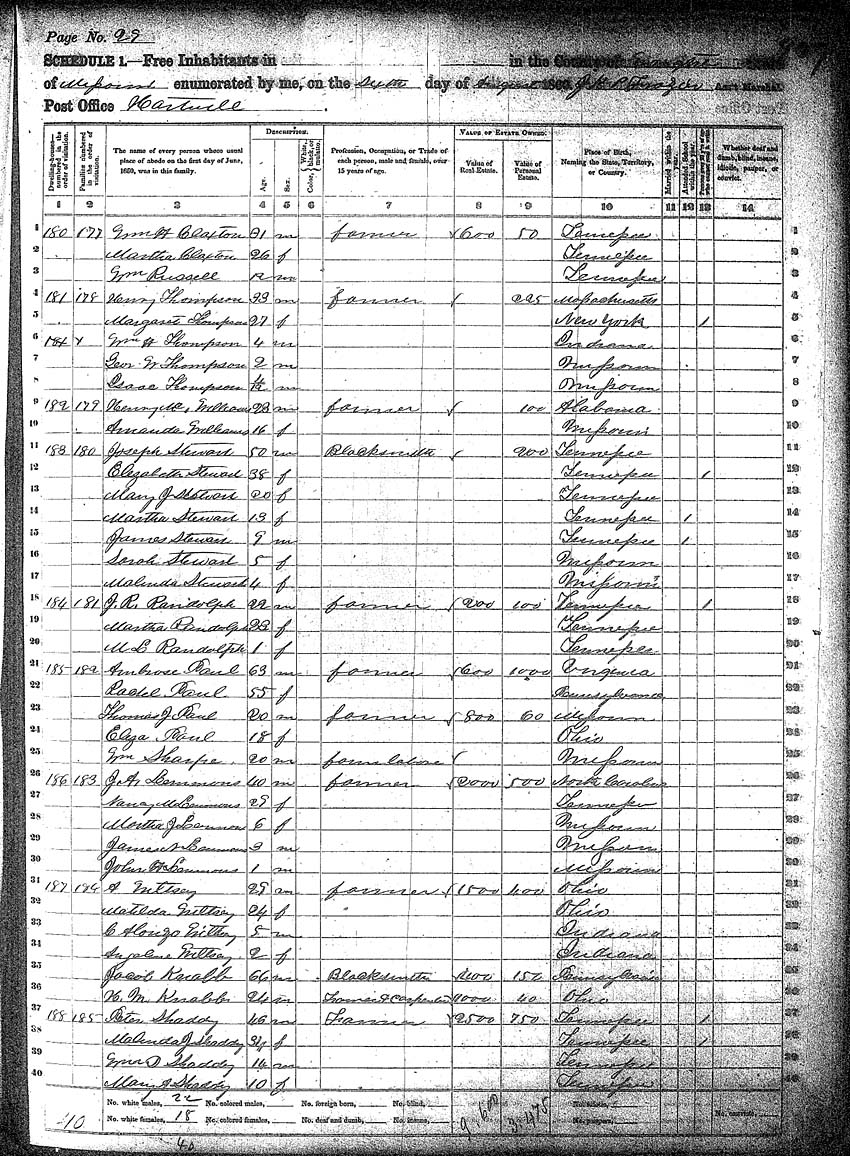 Page No. 29
SCHEDULE 1.—Free Inhabitants in in the County of
of Missouri enumerated by me, on the Sixth day of August 1860. Ass't Marshal.
Post Office Hartville
Dwelling-houses—numbered in the order of visitation.
Families numbered in the order of visitation.
The name of every person whose usual place of abode on the first day of June, 1860, was in this family.
Description.
Age.
Sex.
Color, White, black, or mulatto.
Profession, Occupation, or Trade of each person, male and female, over 15 years of age.
Value of Estate Owned.
Value of Real Estate.
Value of Personal Estate.
Place of Birth, Naming the State, Territory, or Country.
Married within the year.
Attended School within the year.
Whether deaf and dumb, blind, insane, idiotic, pauper, or convict.
1 2 3 4 5 6 7 8 9 10 11 12 13 14
1 180 177 Wm H Claxton 21 m farmer 600 50 Tennessee 1
2 Martha Claxton 26 f Tennessee 2
3 Wm Russell 12 m Tennessee 3
4 181 178 Henry Thompson m farmer 225 Massachusetts 4
5 Margaret Thompson 27 f New York 1 5
6 Wm H Thompson 4 m Indiana 6
7 Geor W Thompson 2 m Missouri 7
8 Isaac Thompson m Missouri 8
9 182 179 Williams 23 m farmer 100 Alabama 9
10 Amanda Williams 16 f Missouri 10
11 183 180 Joseph Stewart 50 m Blacksmith 200 Tennessee 11
12 Elizabeth Stewart 38 f Tennessee 1 12
13 Mary J Stewart 20 f Tennessee 13
14 Martha Stewart 13 f Tennessee 1 14
15 James Stewart 9 m Tennessee 1 15
16 Sarah Stewart 5 f Missouri 16
17 Malinda Stewart 4 f Missouri 17
18 184 181 J. R. Randolph 22 m farmer 200 100 Tennessee 1 18
19 Martha Randolph 23 f Tennessee 19
20 M E Randolph 1 f Tennessee 20
21 185 182 Ambrose Paul 63 m farmer 600 1000 Virginia 21
22 Rachel Paul 55 f Pennsylvania 22
23 Thomas J Paul 20 m farmer 800 60 Missouri 23
24 Eliza Paul 18 f Ohio 24
25 Wm Sharpe 20 m farm laborer Missouri 25
26 186 183 J. A. Lemmons 40 m farmer 2000 500 North Carolina 26
27 Nancy M Lemmons 29 f Tennessee 27
28 Martha J Lemmons 6 f Missouri 28
29 James Lemmons 3 m Missouri 29
30 John H Lemmons 1 m Missouri 30
31 187 184 A 29 m farmer 1500 400 Ohio 31
32 Matilda 24 f Ohio 32
33 C Alonzo 5 m Indiana 33
34 Angeline 2 f Indiana 34
35 Jacob Knabb 66 m Blacksmith 150 Pennsylvania 35
36 Knabb 24 m Farmer & Carpenter 1000 40 Ohio 36
37 188 185 Peter Shaddy 46 m Farmer 2500 750 Tennessee 1 37
38 Malinda J Shaddy 34 f Tennessee 1 38
39 Wm D Shaddy 14 m Tennessee 39
40 Mary A Shaddy 10 f Tennessee 40
No. white males, 22 No. colored males, No. foreign born, No. blind,
No. white females, 18 No. colored females, No. deaf and dumb, No. insane, No. idiotic, No. paupers, No. convicts,
40
40